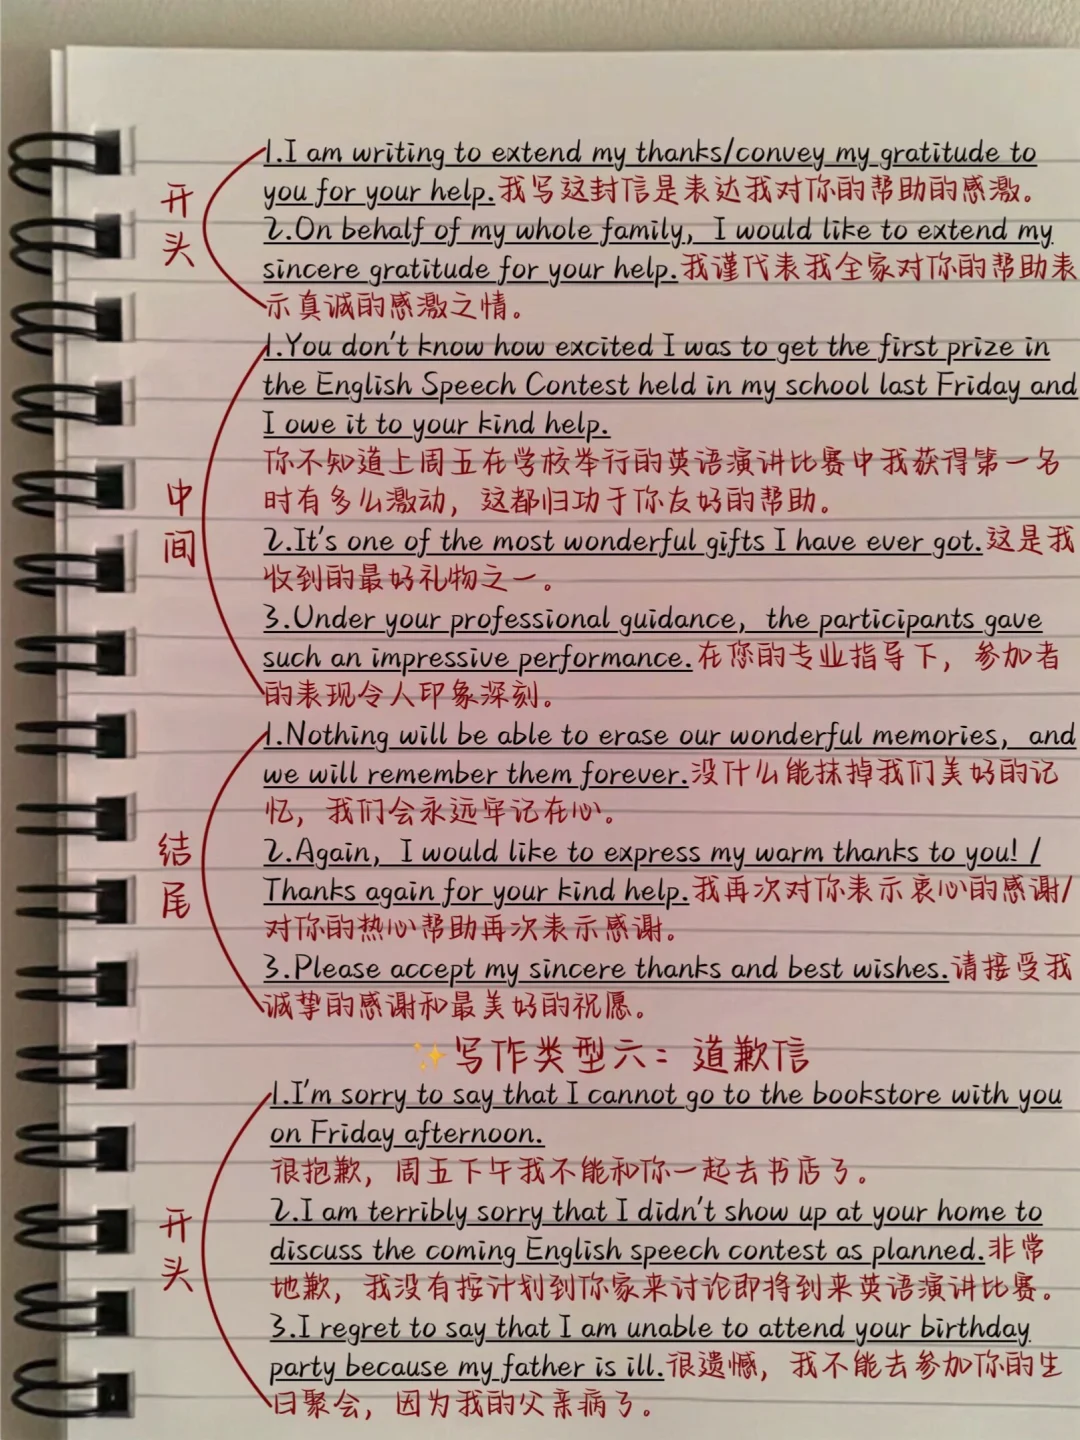 开头
1.I am writing to extend my thanks/convey my gratitude to
you for your help.我写这封信是表达我对你的帮助的感激。
2.On behalf of my whole family, I would like to extend my
sincere gratitude for your help.我谨代表我全家对你的帮助表
示真诚的感激之情。
中间
1.You don't know how excited I was to get the first prize in
the English Speech Contest held in my school last Friday and
I owe it to your kind help.
你不知道上周五在学校举行的英语演讲比赛中我获得第一名
时有多么激动，这都归功于你友好的帮助。
2.It's one of the most wonderful gifts I have ever got.这是我
收到的最好礼物之一。
3.Under your professional guidance, the participants gave
such an impressive performance.在您的专业指导下，参加者
的表现令人印象深刻。
结尾
1.Nothing will be able to erase our wonderful memories, and
we will remember them forever.没什么能抹掉我们美好的记
忆，我们会永远牢记在心。
2.Again, I would like to express my warm thanks to you! /
Thanks again for your kind help.我再次对你表示衷心的感谢/
对你的热心帮助再次表示感谢。
3.Please accept my sincere thanks and best wishes.请接受我
诚挚的感谢和最美好的祝愿。
✨写作类型六：道歉信
开头
1.I'm sorry to say that I cannot go to the bookstore with you
on Friday afternoon.
很抱歉，周五下午我不能和你一起去书店了。
2.I am terribly sorry that I didn't show up at your home to
discuss the coming English speech contest as planned.非常
地歉，我没有按计划到你家来讨论即将到来英语演讲比赛。
3.I regret to say that I am unable to attend your birthday
party because my father is ill.很遗憾，我不能去参加你的生
日聚会，因为我的父亲病了。